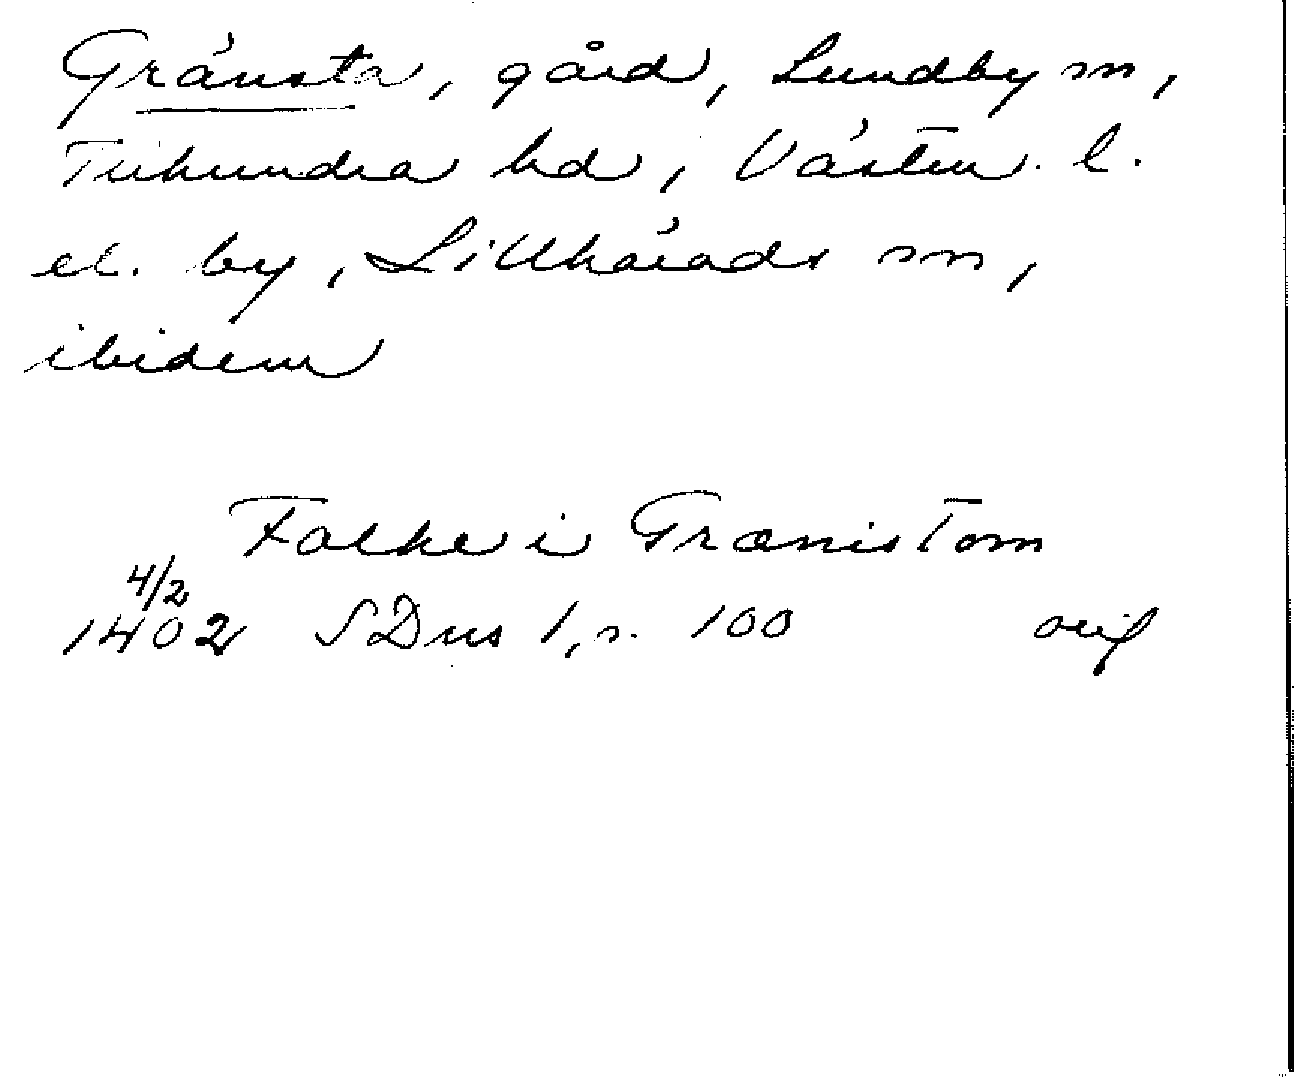 Gränsta, gård, Lundby sn,
Tuhundra hd, Västm. l.
el. by, Lillhärads sn,
ibidem
Falke i Grænistom
4/2
1402 SDns 1, s. 100 orig